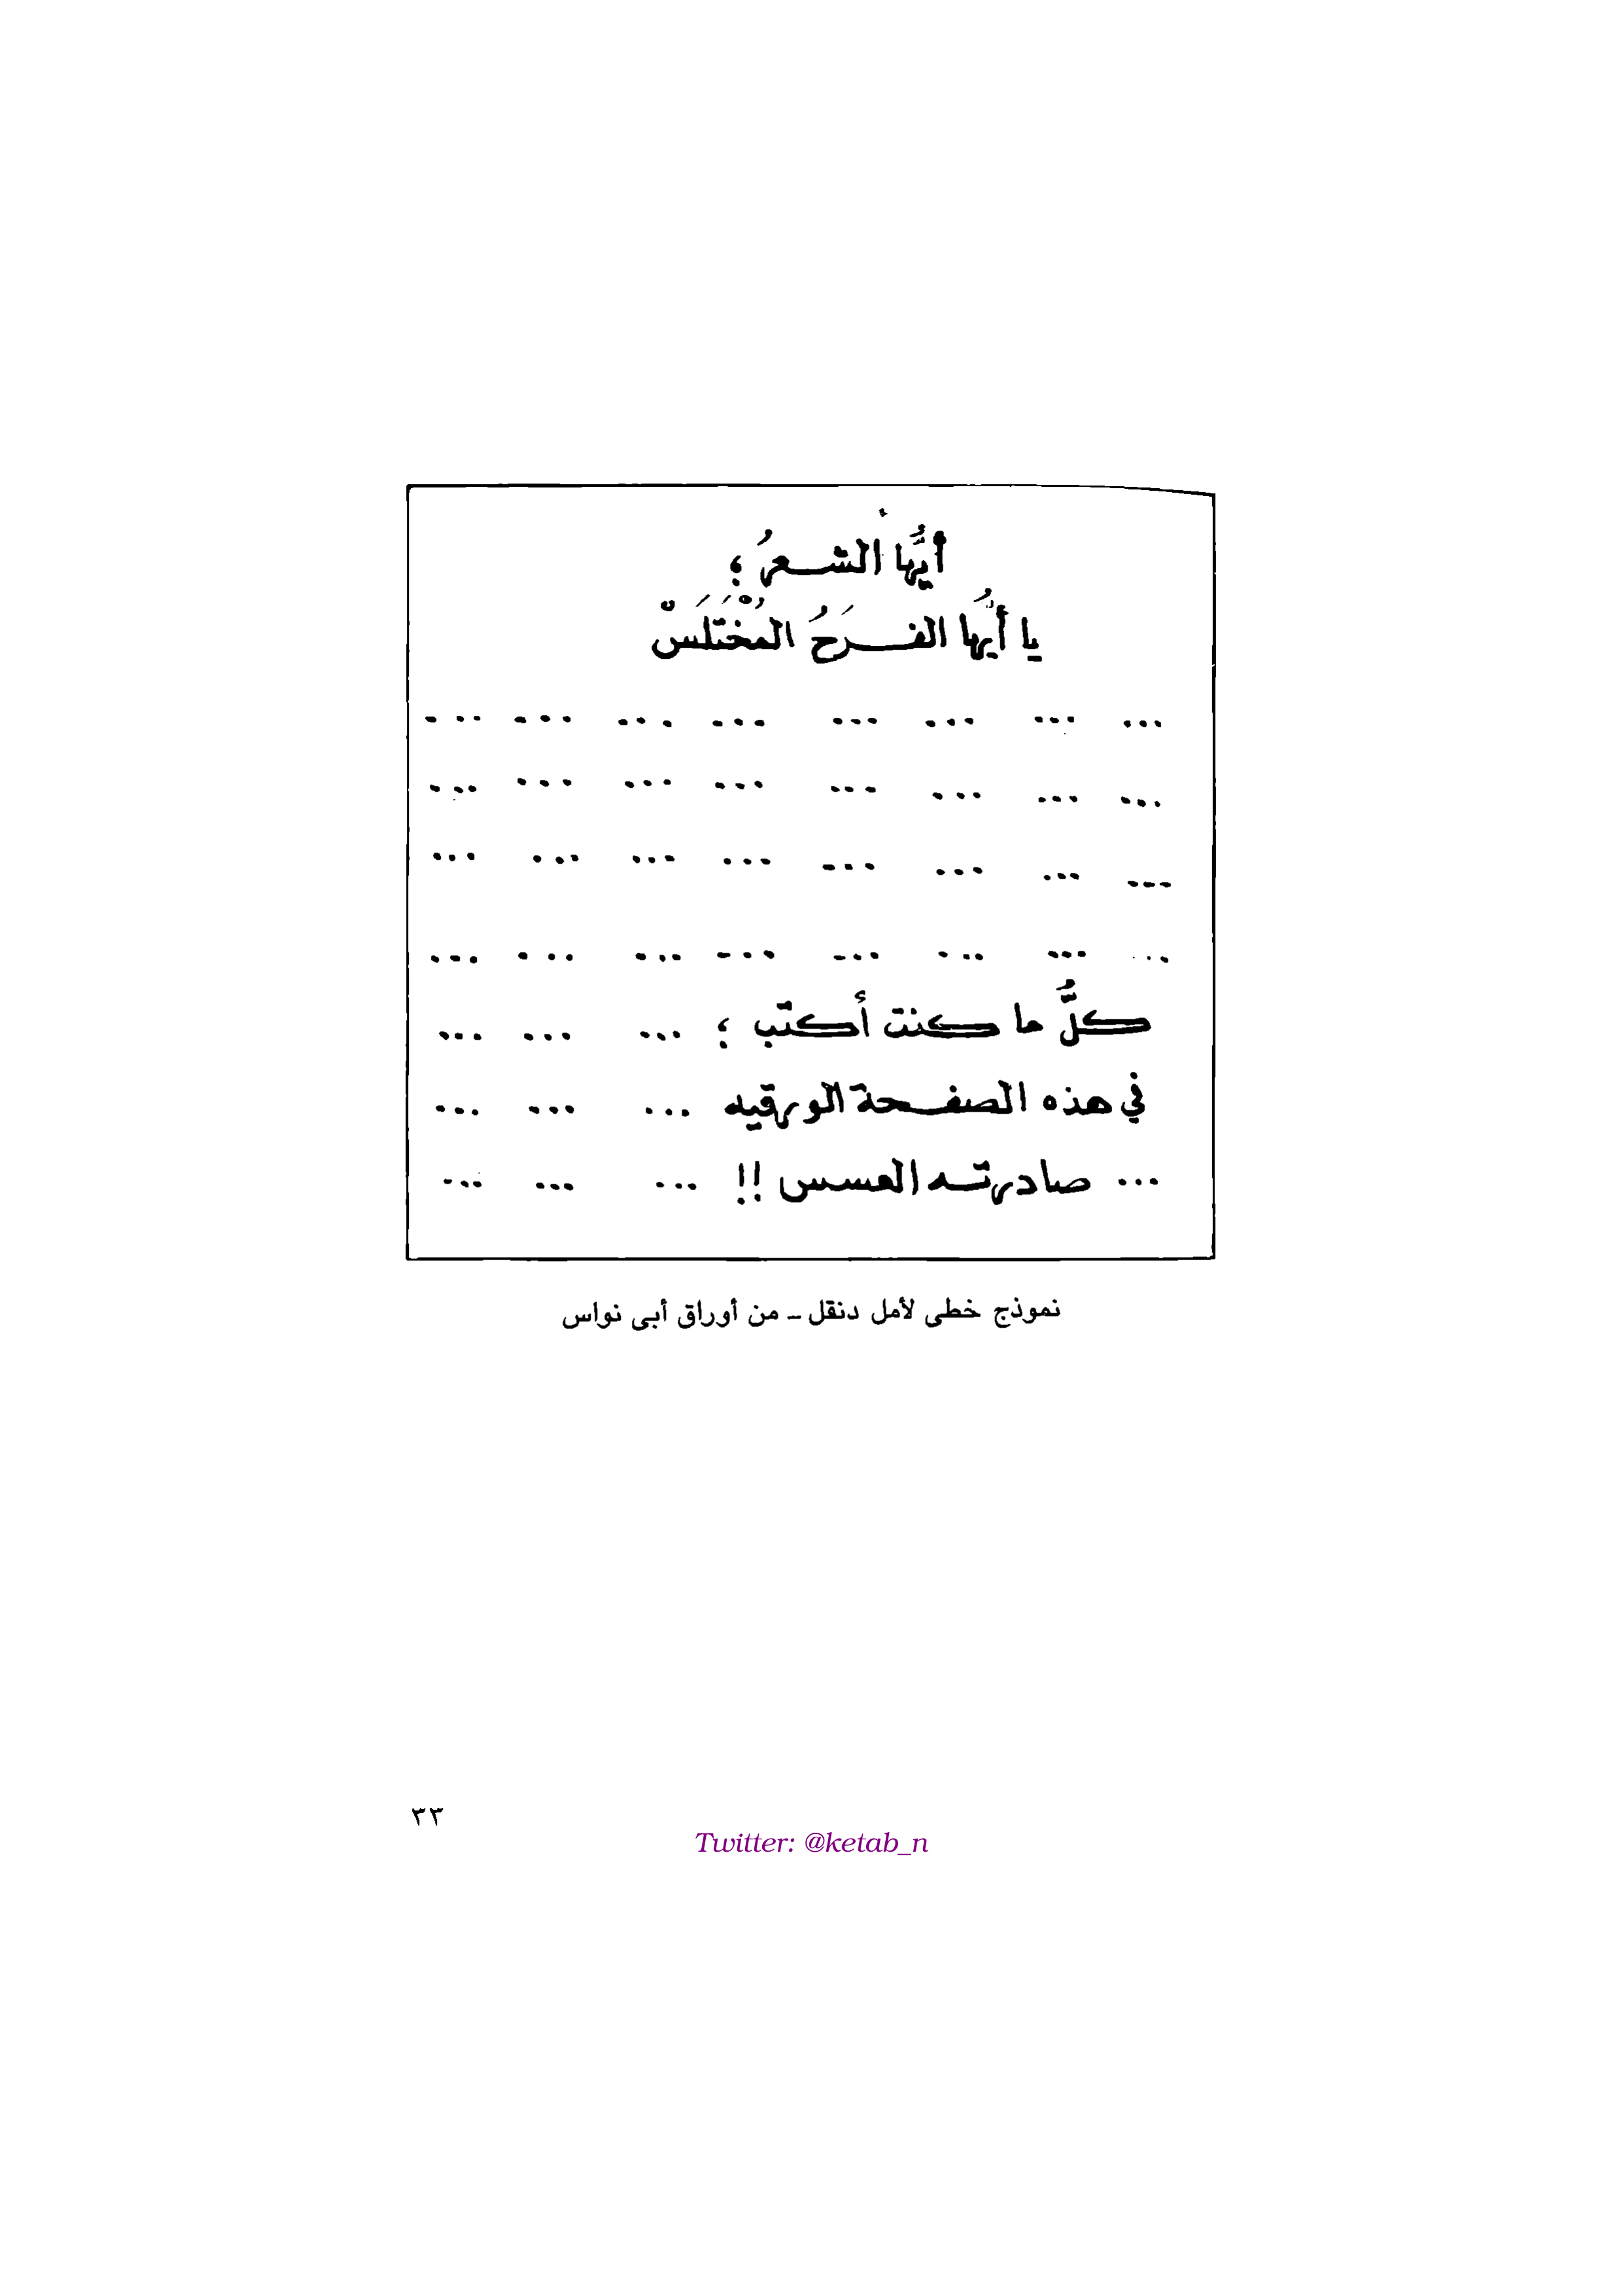 أيُّها الشعرُ ؛
يا أيُّها الفَرَحُ المُخْتَلَسْ
... ... ... ... ... ... ... ...
... ... ... ... ... ... ... ...
... ... ... ... ... ... ... ...
.. ... ... ... ... ... ... ...
كلُّ ما كنت أكتب ؛ ... ... ...
في هذه الصفحة الورقيه ... ... ...
... صادرته العسس !! ... ... ...
نموذج خطى لأمل دنقل ــ من أوراق أبى نواس
٣٣
Twitter: @ketab_n